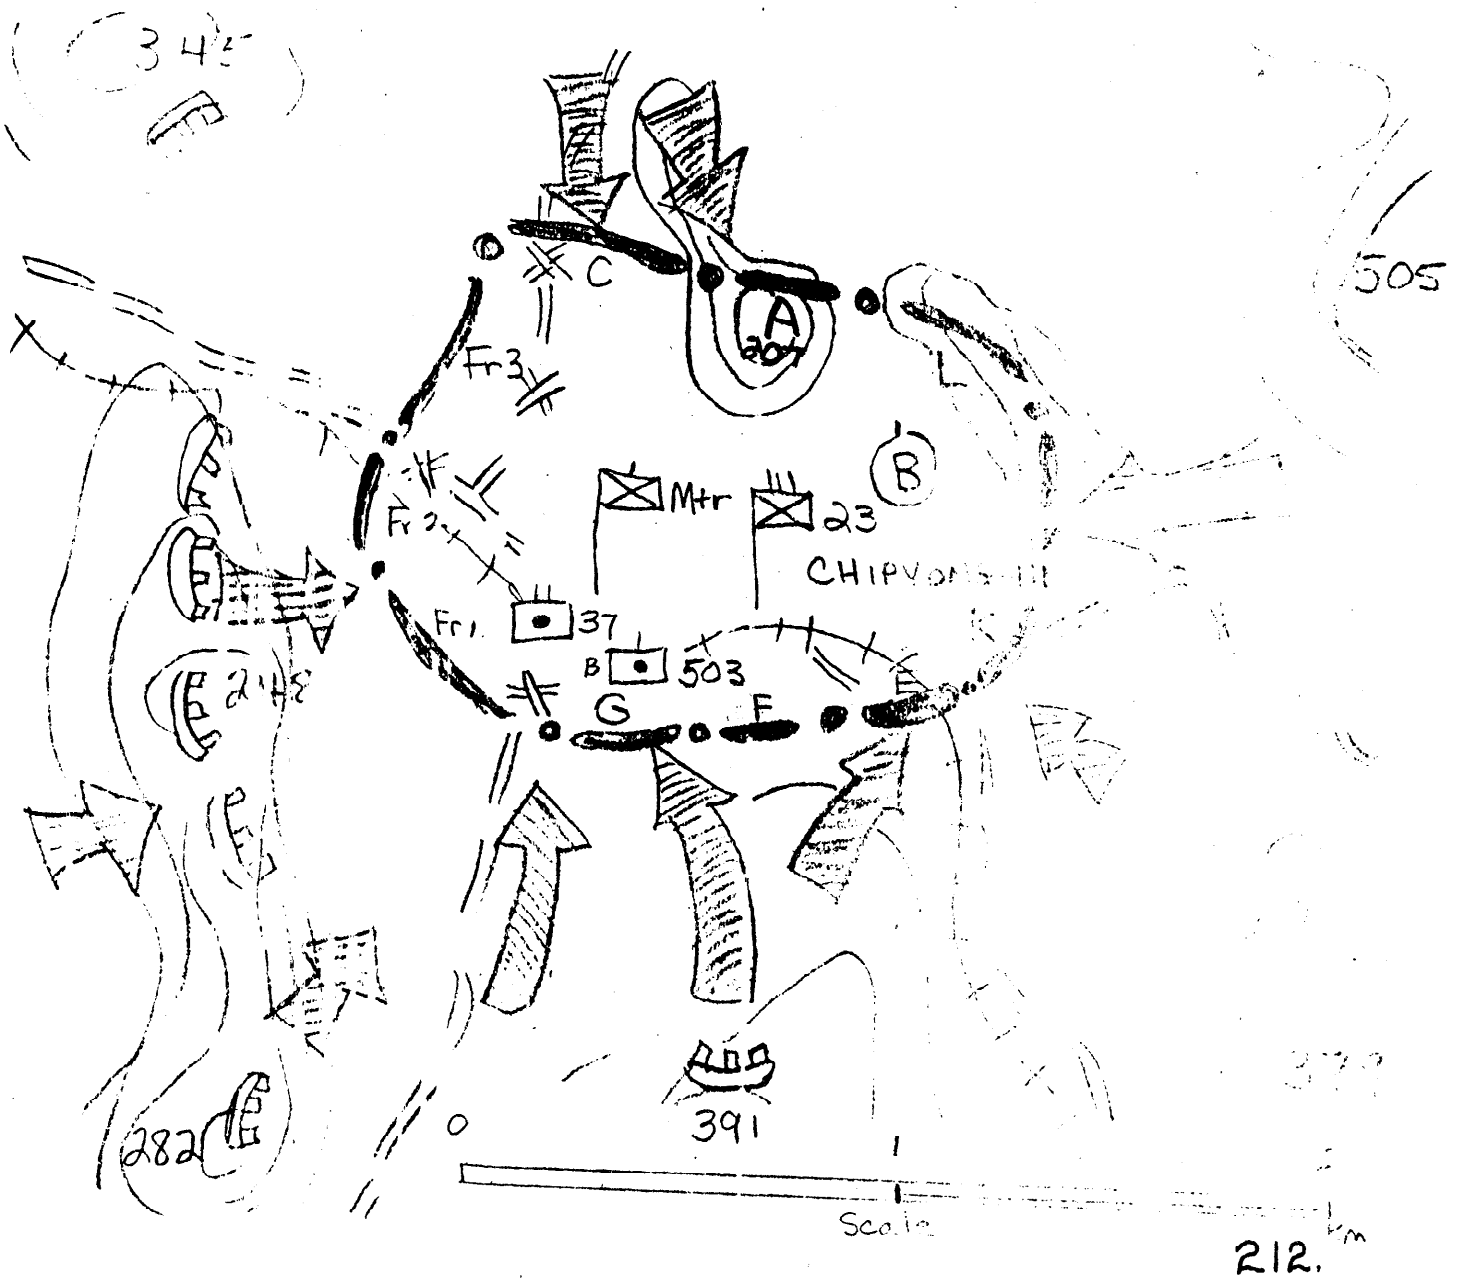 345
505
C
A
207
Fr3
L
B
Mtr
23
Fr2
CHIPYONG-NI
Fr1
37
K
B
503
248
G
F
E
379
391
282
0
Scale
km
212.